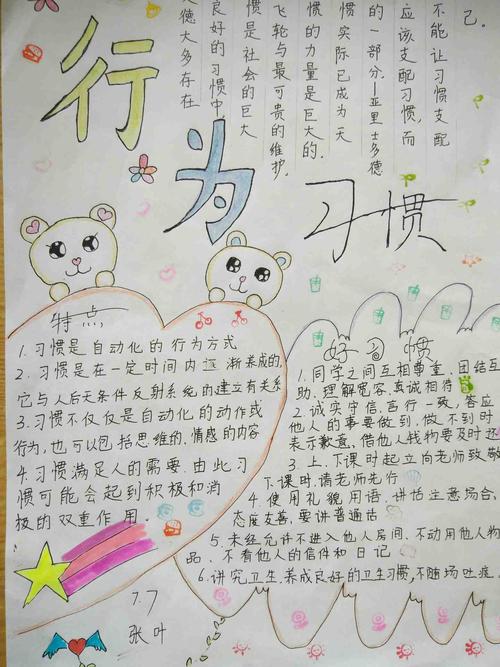 行为习惯
不能让习惯支配
己。
应该支配习惯,而
的一部分—亚里士多德
惯实际已成为天
惯的力量是巨大的.
飞轮与最可贵的维护.
惯是社会的巨大
良好的习惯中,
德大多存在
特点
1.习惯是自动化的行为方式
2.习惯是在一定时间内逐渐养成的,
它与人后天条件反射系统的建立有关系
3.习惯不仅仅是自动化的动作或
行为,也可以包括思维的、情感的内容
4.习惯满足人的需要.由此习
惯可能会起到积极和消
极的双重作用.
7.7
张叶
好习惯
1.同学之间互相尊重、团结互
助、理解宽容、真诚相待
2.诚实守信、言行一致,答应
他人的事要做到,做不到时
表示歉意,借他人钱物要及时还
3.上、下课时起立向老师致敬
下课时,请老师先行
4.使用礼貌用语,讲话注意场合,
态度友善,要讲普通话
5.未经允许不进入他人房间、不动用他人物
品、不看他人的信件和日记
6.讲究卫生.养成良好的卫生习惯,不随场吐痰.